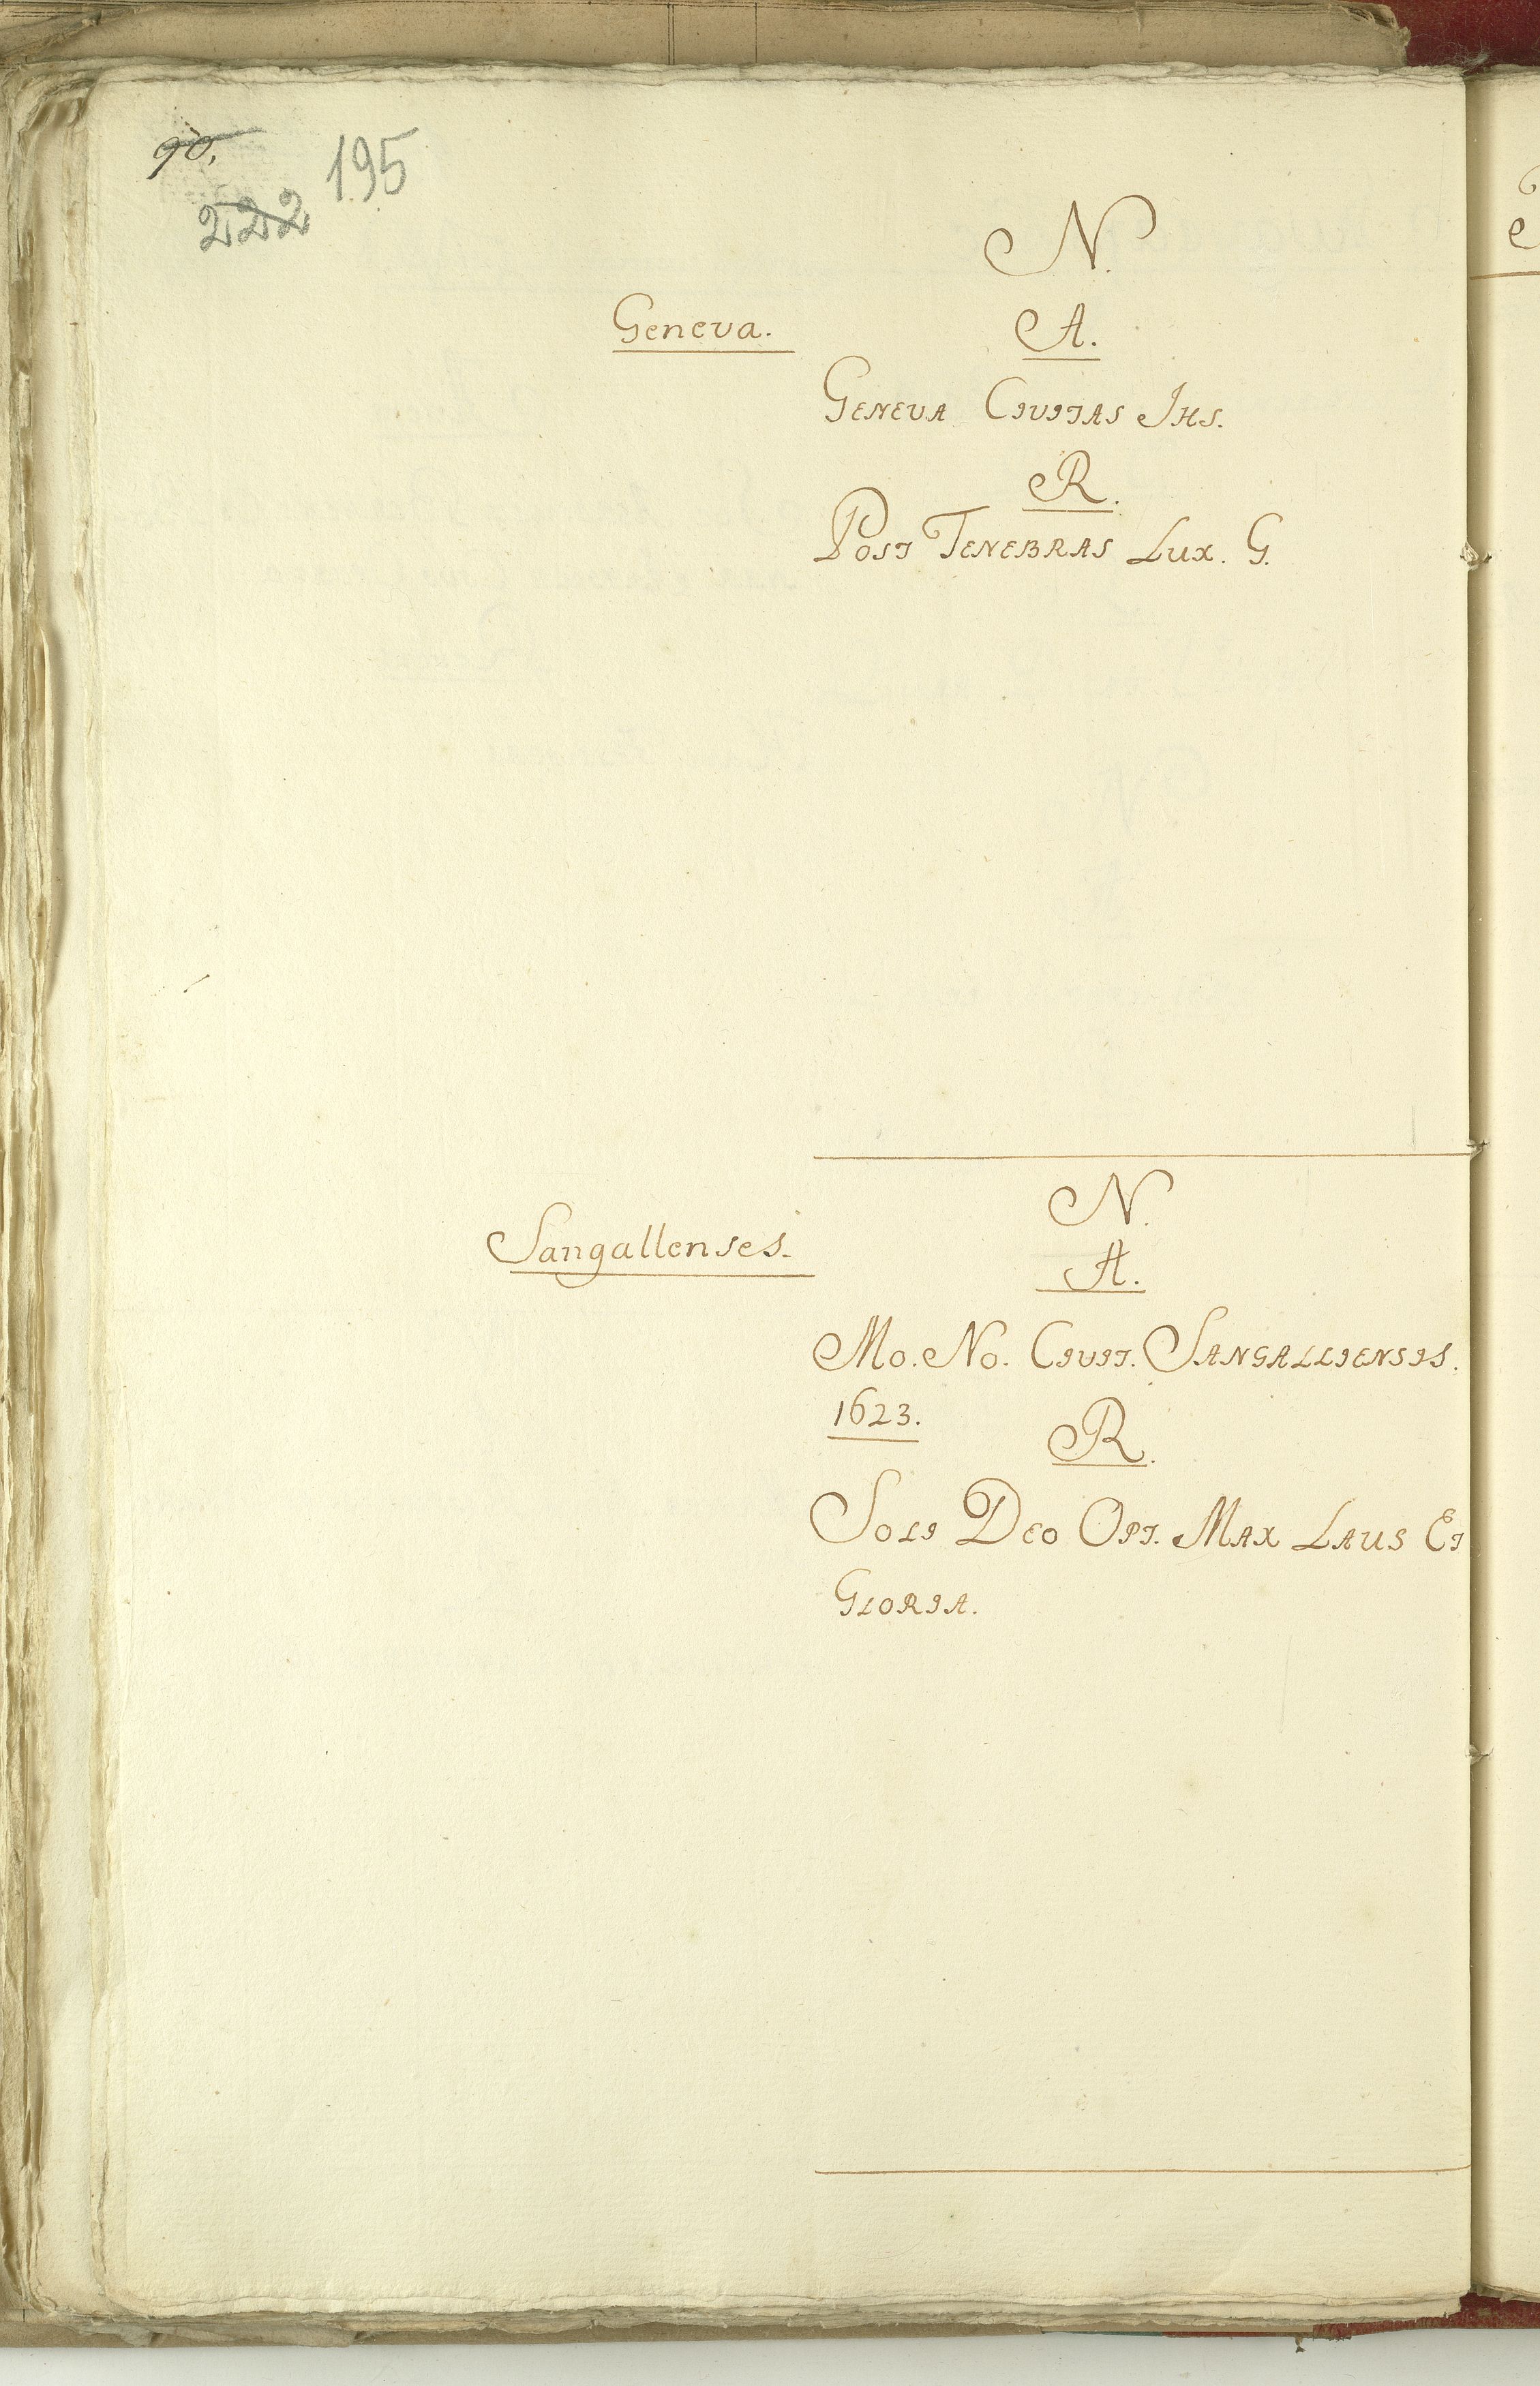 90.
195
222
N.
Geneva. A.
GENEVA CIVITAS IHS.
R.
POST TENEBRAS LUX. G.
N.
Sangallenses. A.
MO. NO. CIVIT. SANGALLIENSIS.
1623. R.
SOLI DEO OPT. MAX LAUS ET
GLORIA.